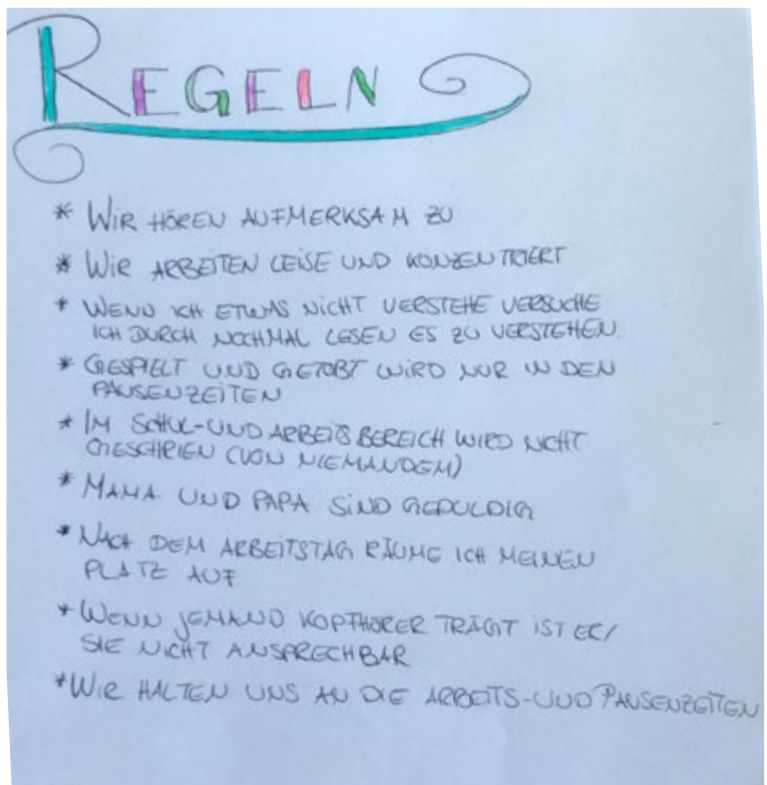 REGELN
* WIR HÖREN AUFMERKSAM ZU
* WIR ARBEITEN LEISE UND KONZENTRIERT
* WENN ICH ETWAS NICHT VERSTEHE VERSUCHE
ICH DURCH NOCHMAL LESEN ES ZU VERSTEHEN.
* GESPIELT UND GETOBT WIRD NUR IN DEN
PAUSENZEITEN
* IM SCHUL-UND ARBEITSBEREICH WIRD NICHT
GESCHRIEN (VON NIEMANDEM)
* MAMA UND PAPA SIND GEDULDIG
* NACH DEM ARBEITSTAG RÄUME ICH MEINEN
PLATZ AUF
* WENN JEMAND KOPFHÖRER TRÄGT IST ER/
SIE NICHT ANSPRECHBAR
* WIR HALTEN UNS AN DIE ARBEITS-UND PAUSENZEITEN